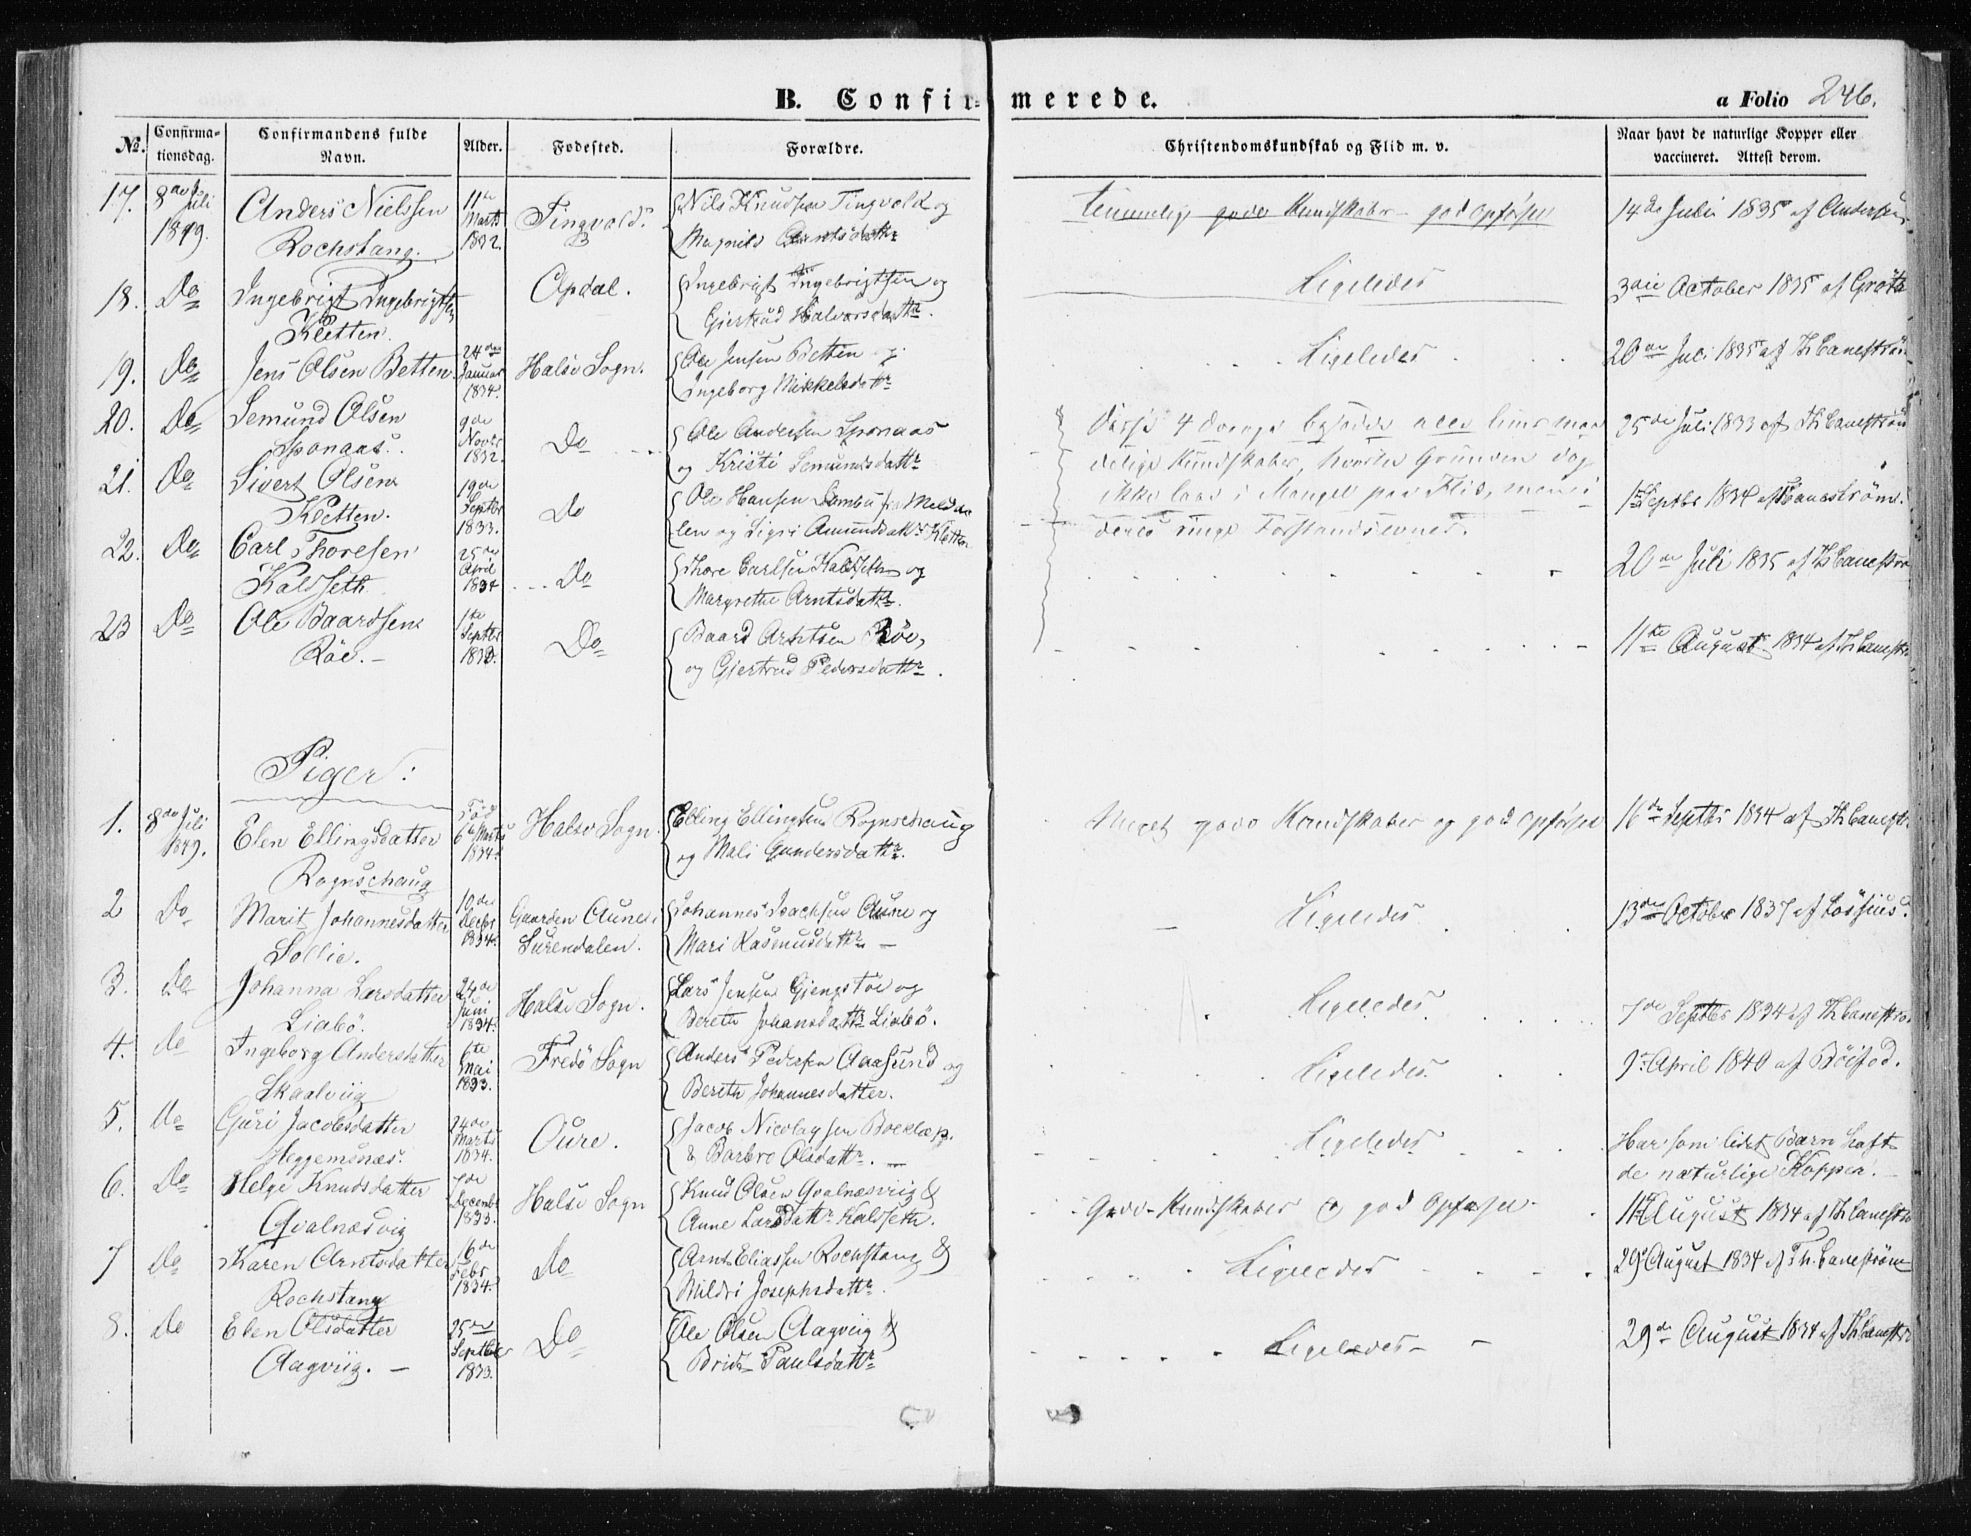 B. Confirmerede.
a Folio 246.
No. Confirmationsdag. Confirmandens fulde Navn. Alder. Fødested. Forældre. Christendomskundskab og Flid m. v. Naar havt de naturlige Kopper eller vaccineret. Attest derom.
17. 8de Juli 1849. Anders Nielssen Rochstang. 11te Marts 1832. Tingvold. Nils Knudsen Tingvold og Magnild Arntsdattr temmelig gode Kundskaber god Opførsel 14de Julii 1835 af Andersen
18. Do Ingebrigt Ingebrigtsen Kletten. Opdal. Ingebrigt Ingebrigtsen og Giertrud Halvorsdattr. Ligeledes 3die October 1835 af Grøtte
19. Do Jens Olsen Betten 24de Januar 1834. Halse Sogn. Ole Jensen Betten og Ingeborg Mikkelsdattr Ligeledes 20de Juli 1835 af Th Canestrøm
20. Do Semund Olsen Sponaas. 9de Novbr 1832. Do Ole Andersen Sponaas og Kristi Semundsdattr Disse 4 Drenge besadde alle kuns maadelige Kundskaber, hvortil Grunden dog 25de Juli 1833 af Th Canestrøm
21. Do Sivert Olsen Kletten. 19de Septbr 1833. Do Ole Hansen fra Meldalen og Sigri Amundsdattr Kletten ikke laae i Mangel paa Flid, men i deres ringe Forstandsevner. 1ste Septbr 1834 af Canestrøm.
22. Do Carl Thoresen Kaldseth 25de April 1834 Do Thore Carlsen Kaldseth og Margrethe Arntsdattr. 20de Juli 1835 af Th Canestrøm
23 Do Ole Baardsen Röe. 1ste Septbr Do Baard Arntsen Röe, og Gjertrud Pedersdattr. 11te August 1834 af Th Canestrøm
Piger:
1. 8de Juli 1849. Elen Ellingsdatter Rognschaug Fød 6te Marts 1834. Halse Sogn. Elling Ellingsen Rognschaug og Mali Gundersdattr. Meget gode Kundskaber og god Opførsel 16de Septbr 1834 af Th Canestr.
2 Do Marit Johannesdatter Sollie. 10de Decbr 1834. Gaarden Aune Surendalen. Johannes Isachsen Aune og Mari Rasmusdattr Ligeledes 13de October 1837 af Lossius.
3. Do Johanna Larsdatter Liabö. 24de Juni 1834. Halse Sogn. Lars Jensen Gjengstøe og Bereth Johansdattr Liabö. Ligeledes. 7de Septbr 1834 af Th Canestrø.
4. do Ingeborg Andersdatter Skaalviig 6te Mai 1833. Fredö Sogn Anders Pedersen Aasund og Bereth Johannesdatter. Ligeledes. 9de April 1840 af
5. Do Guri Jacobsdatter Heggemsnæs. 24de Marts 1834. Oure. Jacob Nicolaysen & Barbro Olsdattr. Ligeledes Har som lidet Barn havt de naturlige Kopper.
6. Do Helge Knudsdatter Qvalnæsvig 7de Decembr 1833. Halse Sogn Knud Olsen Qvalnæsviig & Anne Larsdattr Kaldseth. Gode Kundskaber & god Opførsel 11te August 1834 af Th Canestrø
7 Do Karen Arntsdatter Rochstang 16de Febr 1834. Do Arnt Eliassen Rochstang & Mildri Josephsdattr. Ligeledes 29de August 1834 af Th. Canestrøm
8. Do Elen Olsdatter Aagviig. 25de Septbr 1833. Do Ole Olsen Aagviig & Paulsdattr Ligeledes 29de August 1834 af Th Canestr